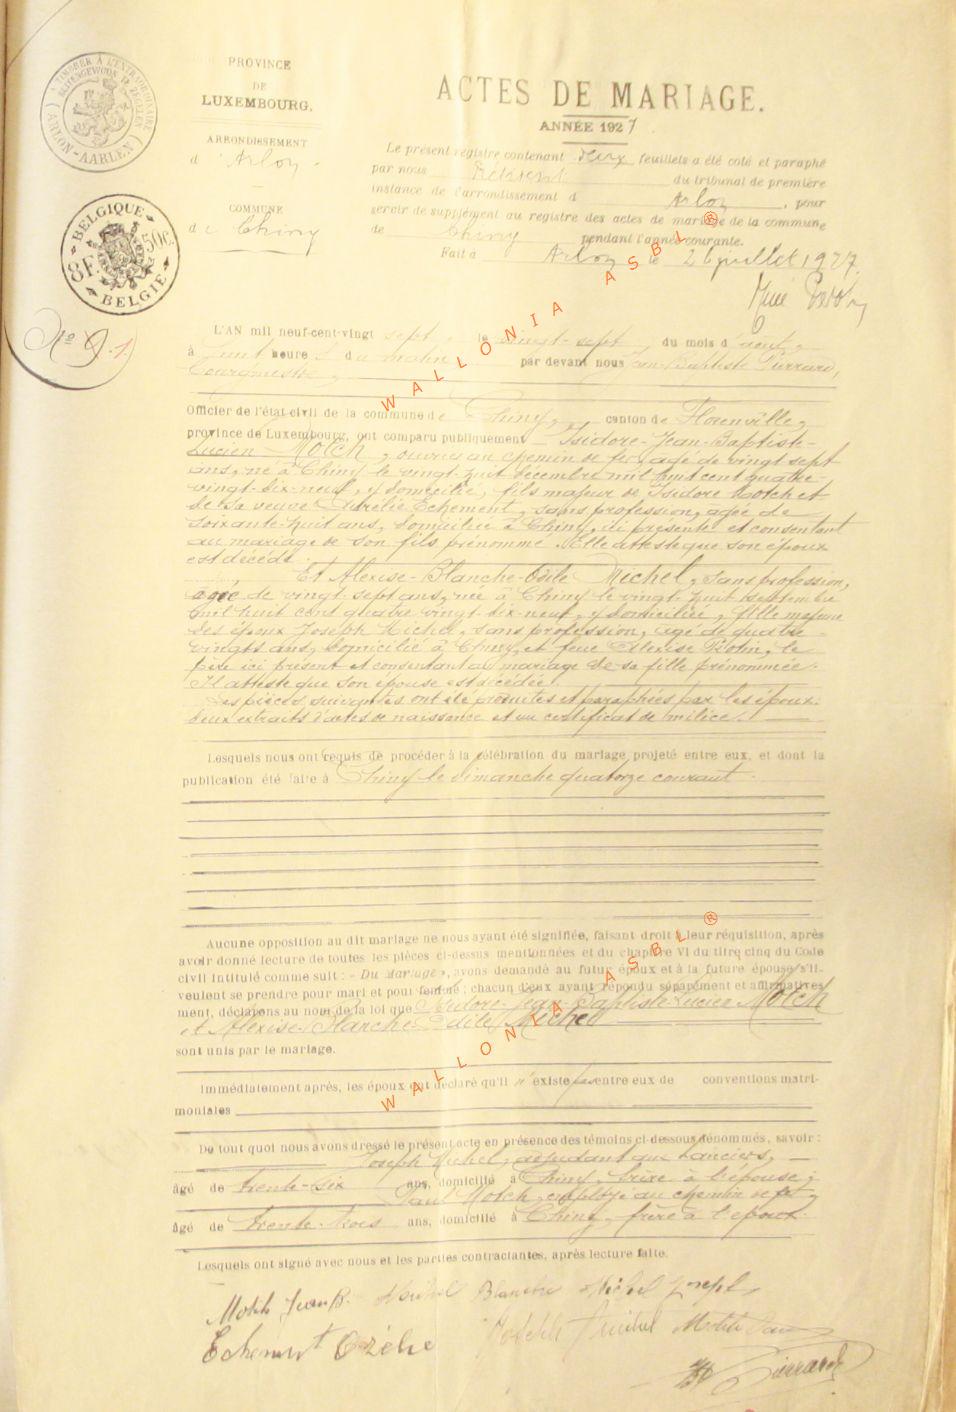 PROVINCE
DE
LUXEMBOURG.
ARRONDISSEMENT
d' Arlon
COMMUNE
de Chiny
TIMBRER À L'EXTRAORDINAIRE
BUITENGEWOON
ARLON-AARLEN
BELGIQUE
8F. 50c
BELGIE
No 9.
ACTES DE MARIAGE.
ANNÉE 1927
Le présent registre contenant deux feuillets a été coté et paraphé
par nous Président du tribunal de première
instance de l'arrondissement d Arlon, pour
servir de supplément au registre des actes de mariage de la commune
de Chiny pendant l'année courante.
Fait à Arlon le 26 juillet 1927.
L'AN mil neuf-cent-vingt sept, le vingt-sept du mois d'août,
à huit heures du matin par devant nous Jean-Baptiste Pierrard,
bourgmestre,
Officier de l'état civil de la commune de Chiny, canton de Florenville,
province de Luxembourg, ont comparu publiquement Isidore-Jean-Baptiste-
Lucien Motch, ouvrier au chemin de fer, âgé de vingt sept
ans, né à Chiny le vingt-huit décembre mil huit cent quatre-
vingt-dix-neuf, y domicilié, fils majeur de Isidore Motch et
de sa veuve Aurélie Echement, sans profession, âgée de
soixante-huit ans, domiciliée à Chiny, ici présente et consentant
au mariage de son fils prénommé. Elle atteste que son époux
est décédé.
Et Alexise-Blanche-Odile Michel, sans profession,
âgée de vingt sept ans, née à Chiny le vingt-huit septembre
mil huit cent quatre vingt-dix-neuf, y domiciliée, fille majeure
des époux Joseph Michel, sans profession, âgé de quatre-
vingts ans, domicilié à Chiny, et feue Alexise, le
père ici présent et consentant au mariage de sa fille prénommée.
Il atteste que son épouse est décédée.
Les pièces suivantes ont été produites et paraphées par les époux:
deux extraits d'actes de naissance et un certificat de milice.
Lesquels nous ont requis de procéder à la célébration du mariage projeté entre eux, et dont la
publication été faite à Chiny le dimanche quatorze courant
Aucune opposition au dit mariage ne nous ayant été signifiée, faisant droit à leur réquisition, après
avoir donné lecture de toutes les pièces ci-dessus mentionnées et du chapitre VI du titre cinq du Code
civil intitulé comme suit : « Du Mariage », avons demandé au futur époux et à la future épouse s'il-
veulent se prendre pour mari et pour femme ; chacun d'eux ayant répondu séparément et affirmative-
ment, déclarons au nom de la loi que Isidore-Jean-Baptiste-Lucien Motch
et Alexise-Blanche-Odile Michel
sont unis par le mariage.
Immédiatement après, les époux ont déclaré qu'il n'existe pas entre eux de conventions matri-
moniales
De tout quoi nous avons dressé le présent acte en présence des témoins ci-dessous dénommés, savoir :
Joseph Michel, adjudant aux Lanciers,
âgé de trente-six ans, domicilié à Chiny, frère à l'épouse;
Paul Motch, employé au chemin de fer,
âgé de trente-trois ans, domicilié à Chiny, frère à l'époux.
Lesquels ont signé avec nous et les parties contractantes, après lecture faite.
Motch Jean B. Michel Blanche Michel Joseph
Echement Michel Motch Paul
Pierrard
WALLONIA ASBL ®
WALLONIA ASBL ®